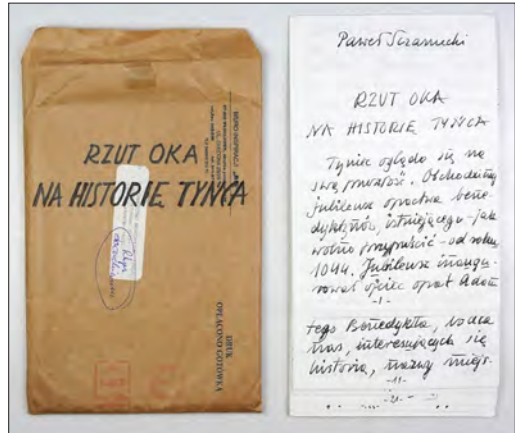 RZUT OKA
NA HISTORIĘ TYŃCA
DRUK
OPŁACONO GOTÓWKĄ
Paweł Sczaniecki
RZUT OKA
NA HISTORIĘ TYŃCA
Tyniec ogląda się na
swą przeszłość. Obchodzimy
jubileusz opactwa bene-
dyktynów, istniejącego - jak
wolno przypuścić - od roku
1044. Jubileusz inaugu-
rował ojciec opat Adam
-1-
tego Benedykta, bo dla
nas, interesujących się
historią, nazwy miejs-
-11-